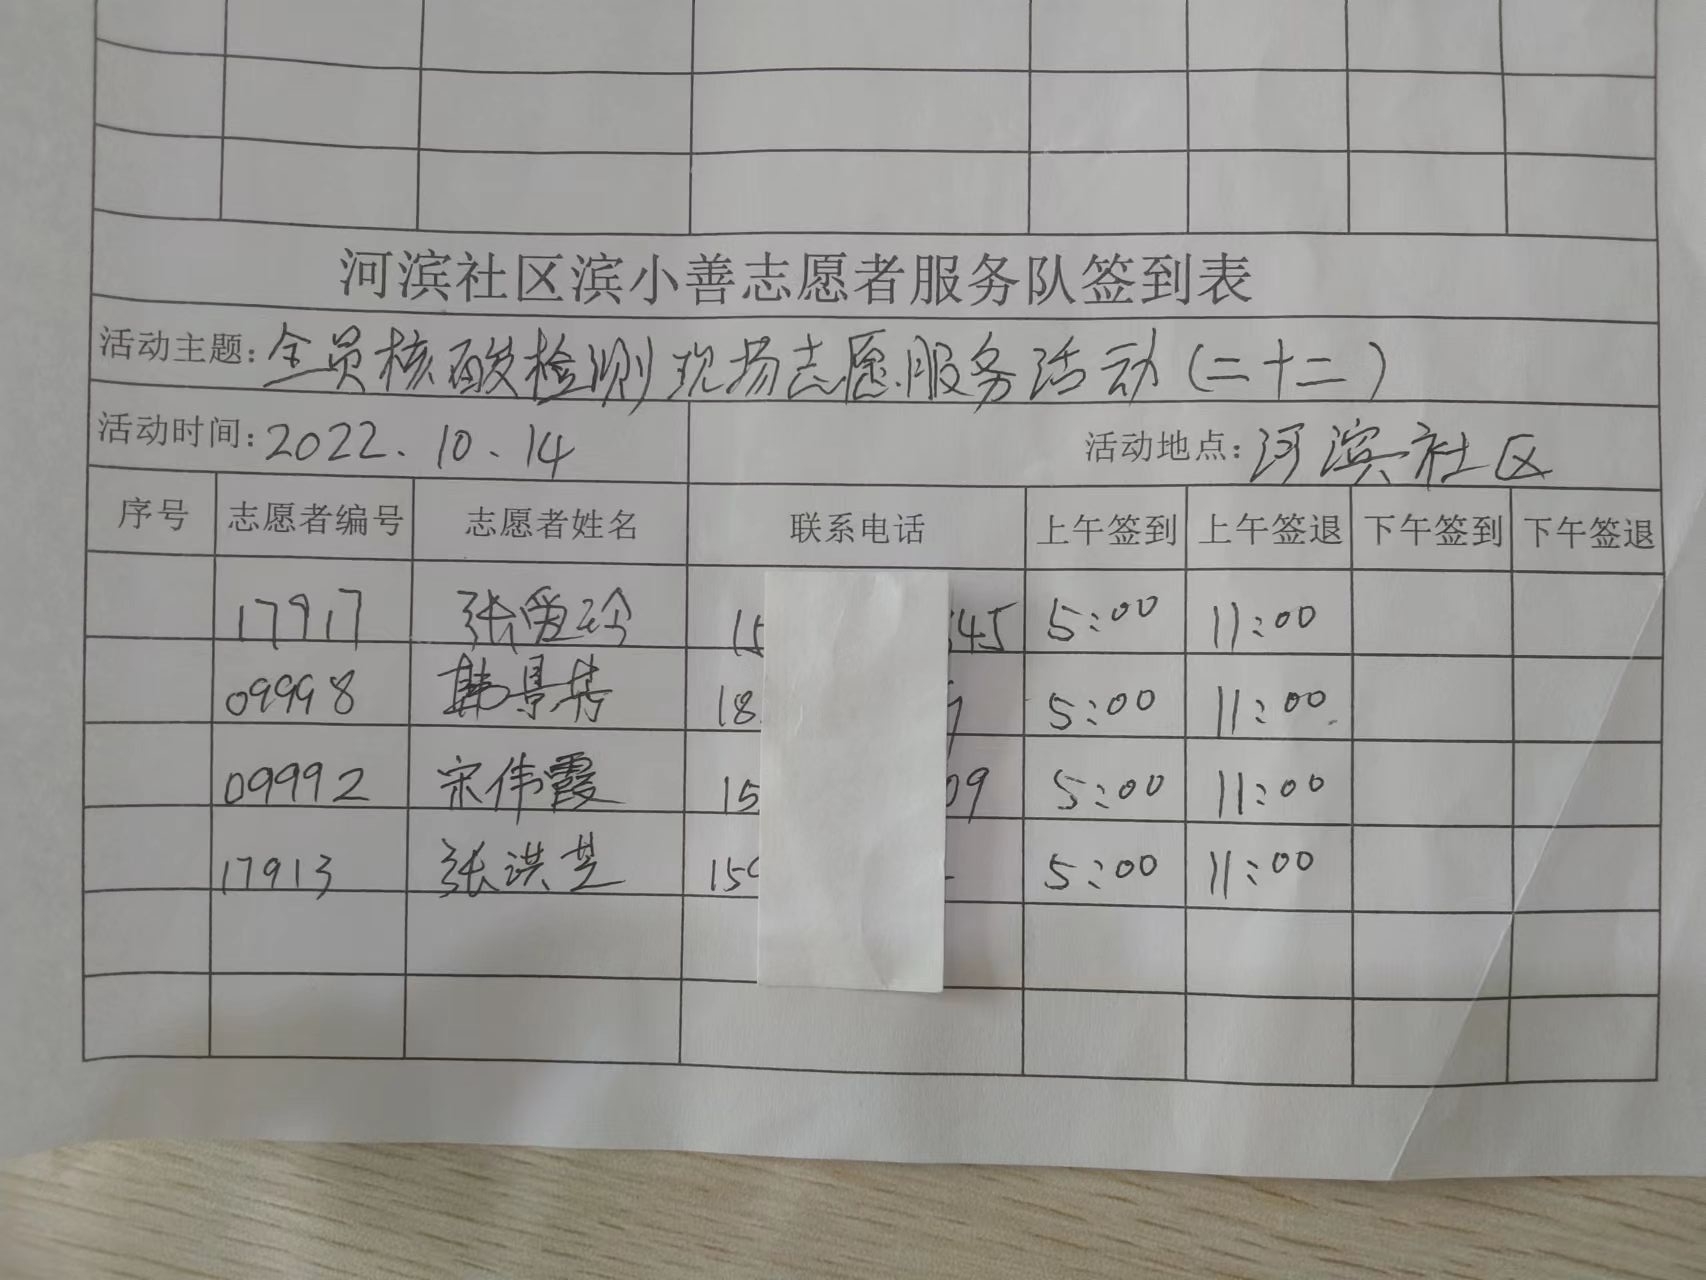 河滨社区滨小善志愿者服务队签到表
活动主题:全员核酸检测现场志愿服务活动(二十二)
活动时间:2022.10.14 活动地点:河滨社区
序号 志愿者编号 志愿者姓名 联系电话 上午签到 上午签退 下午签到 下午签退
17917 张爱玲 15 45 5:00 11:00
09998 韩景芳 18 5:00 11:00
09992 宋伟霞 15 09 5:00 11:00
17913 张洪芝 159 5:00 11:00